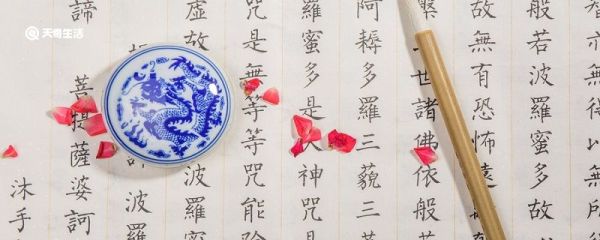 天奇生活
智亦無得以無所
般若波羅蜜多故
故無有恐怖遠
世諸佛依般
阿耨多羅三藐三
羅蜜多是大神咒
咒是無等等咒能除
虛故 波羅
波羅
諦 菩提薩婆訶
沐手